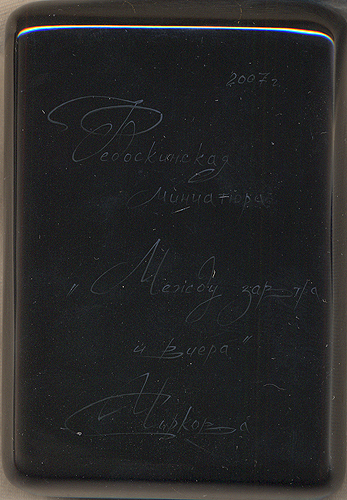 2007г.
Федоскинская
миниатюра
"Между завтра
и вчера"